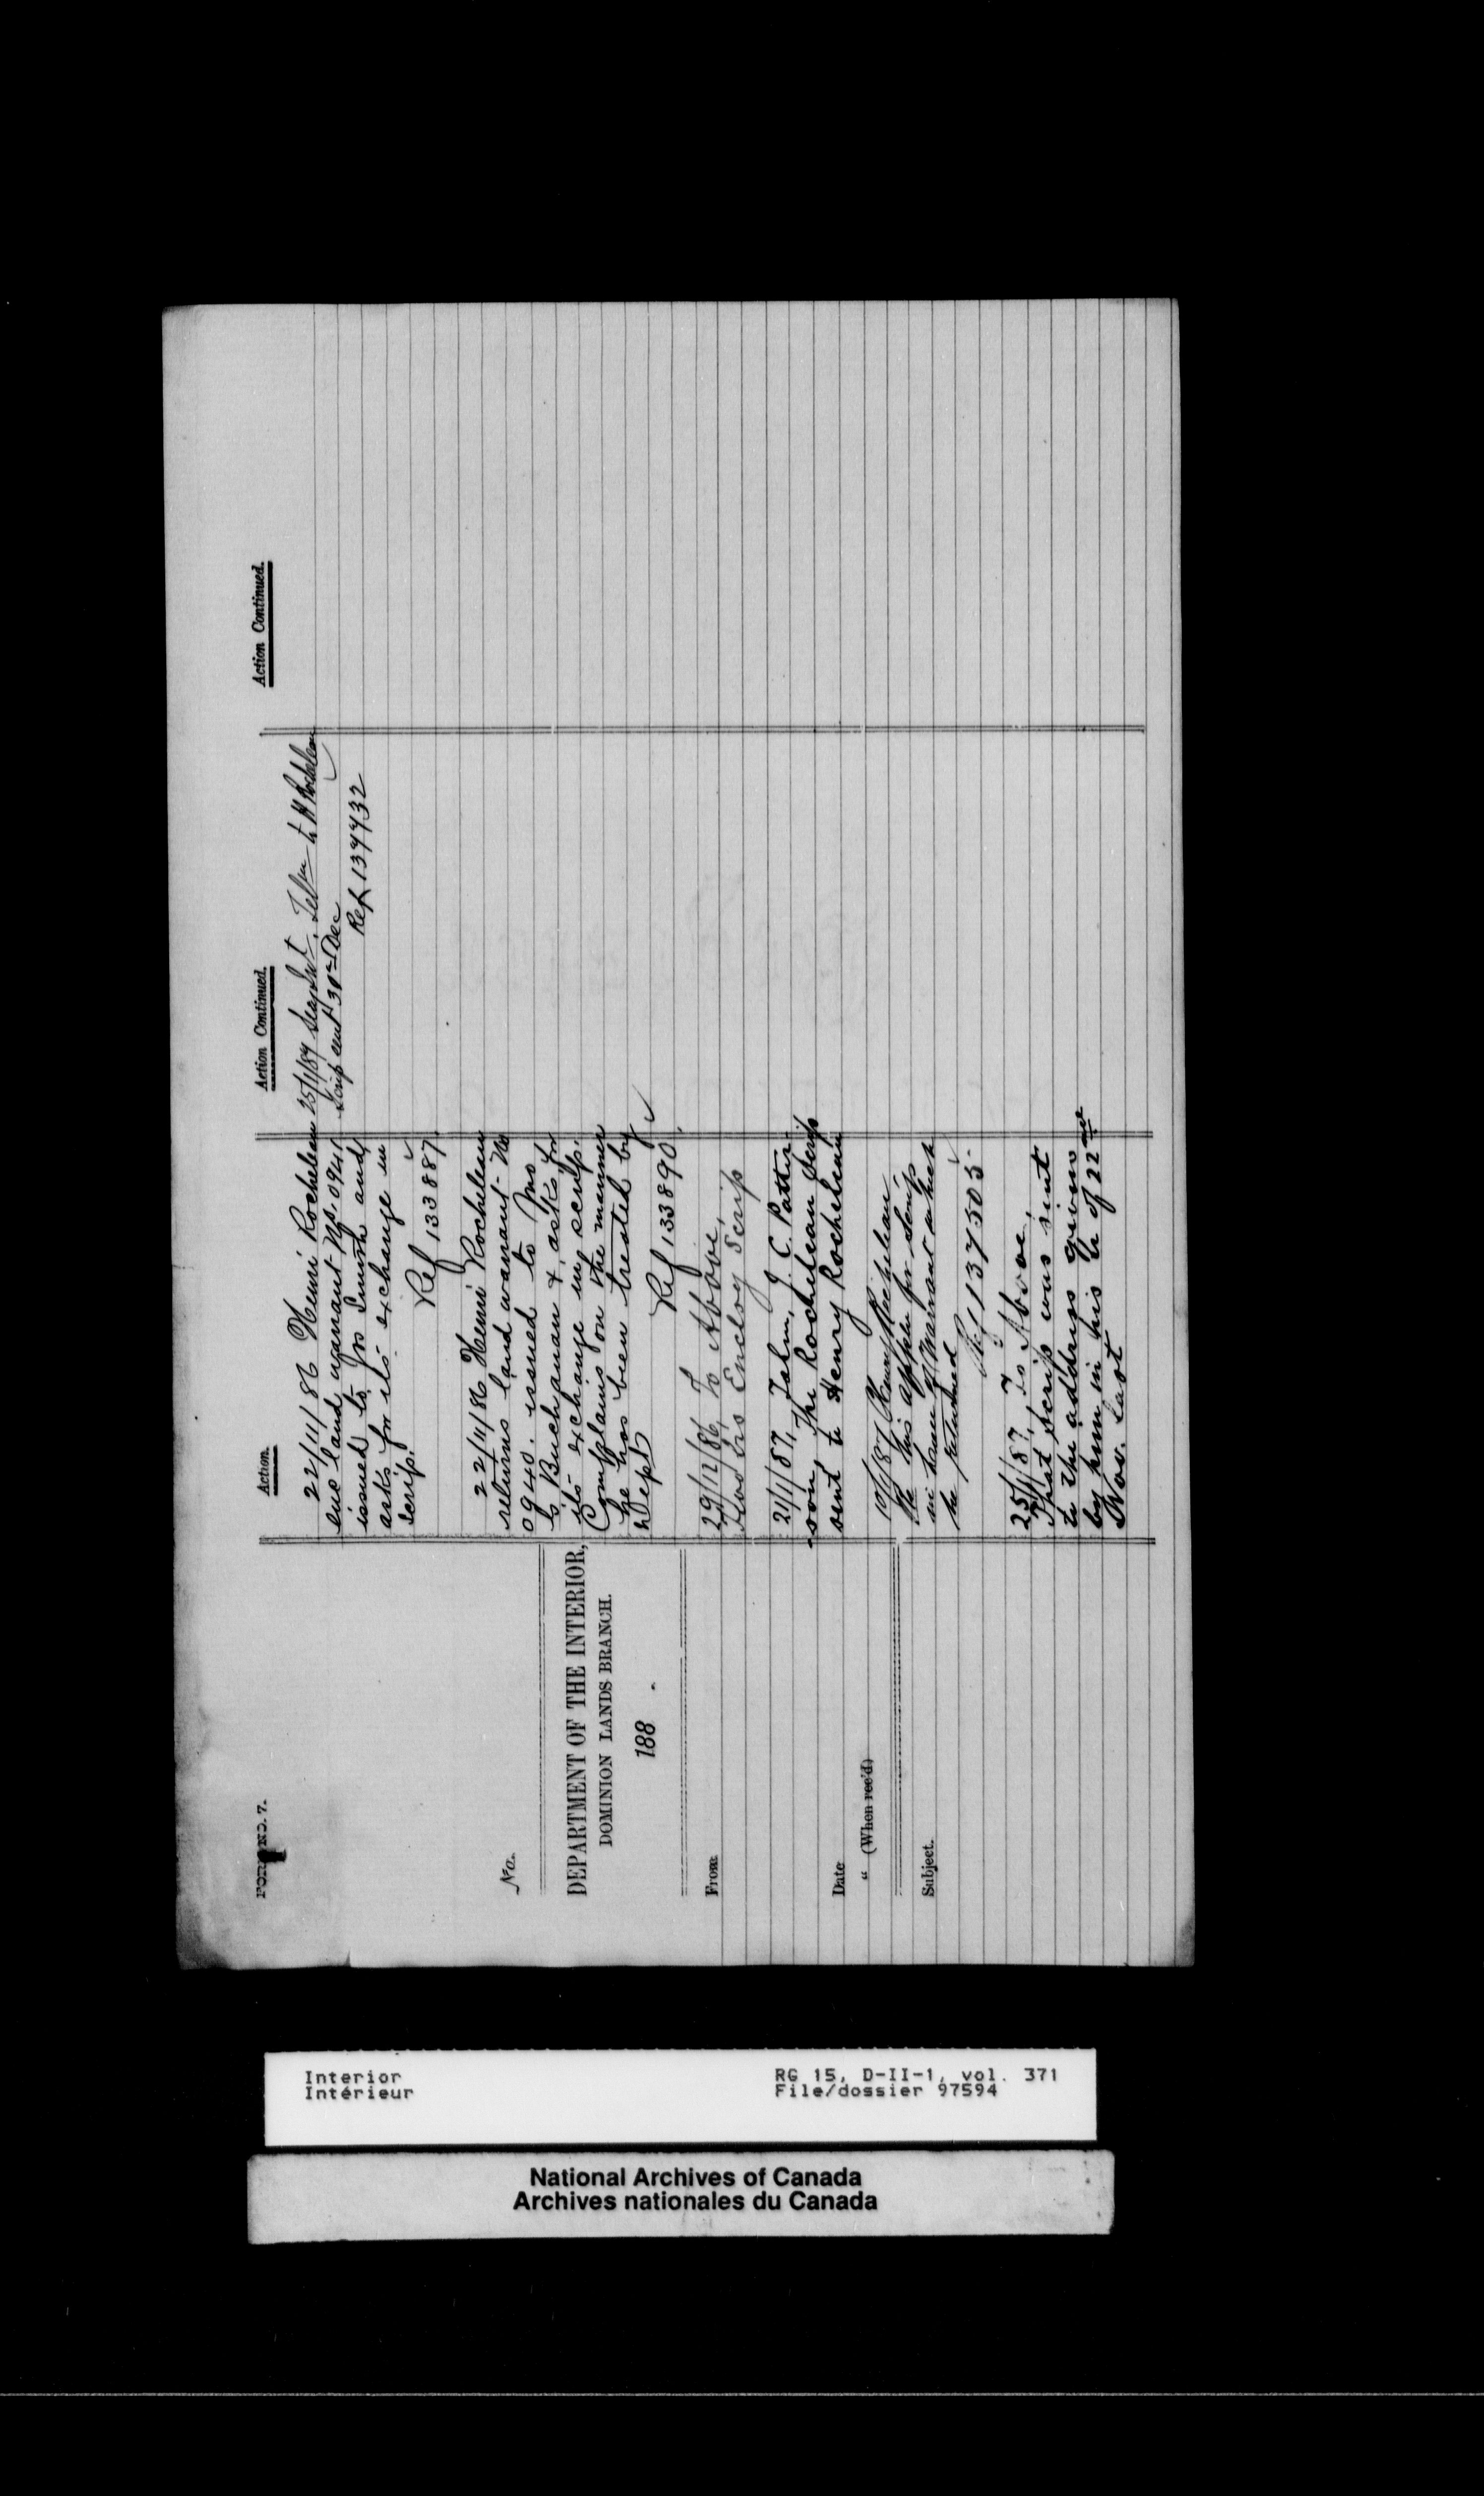 FORM NO. 7.
No.
DEPARTMENT OF THE INTERIOR,
DOMINION LANDS BRANCH.
188 .
From
Date
" (When rec'd)
Subject.
Action.
22/11/86 Henri Rocheleau
enc land warrant No. 0941
issued to Jno Smith and
asks for its exchange in
scrip.
Ref 133887.
22/11/86 Henri Rocheleau
returns land warrant No
0940. issued to Jno
S Buchanan & asks for
its exchange in scrip.
Complains on the manner
he has been treated by
Dept
Ref 133890.
29/12/86, To Above,
Enclosg Scrip
21/1/87, Telm, J. C. Patter-
son, The Rocheleau Scrip
sent to Henry Rocheleau
19/1/87 Henry Rocheleau
Re his appln for Scrip
in lieu of Warrant which
he returned
Ref 137505
25/1/87, To Above,
That scrip was sent
to the address given
by him in his le of 22nd
Nov. last
Action Continued.
25/1/87 Telm to H Rocheleau
Scrip sent 30th Dec
Ref 137732
Action Continued.
Interior
Intérieur
RG 15, D-II-1, vol. 371
File/dossier 97594
National Archives of Canada
Archives nationales du Canada